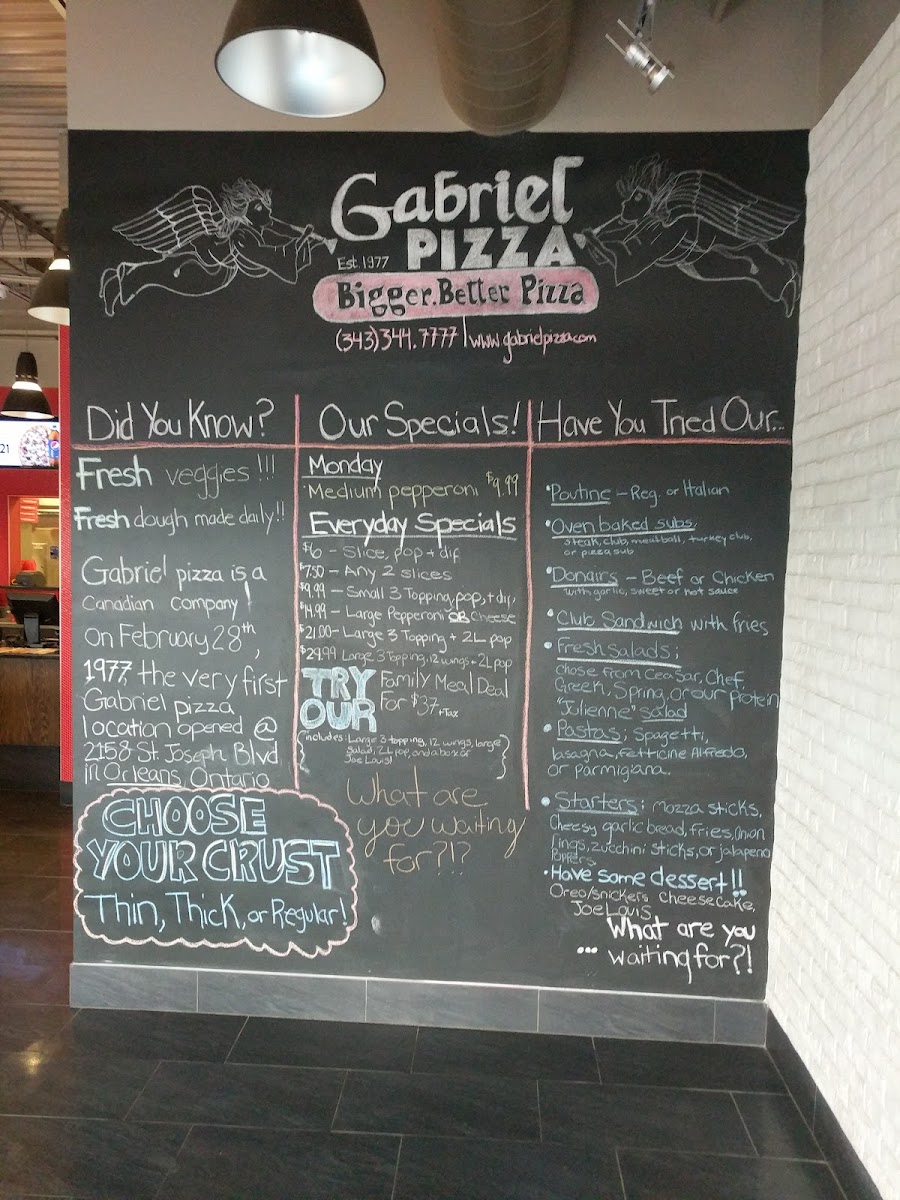 Gabriel
PIZZA
Est. 1977
Bigger. Better Pizza
(343)344.7777 | www.gabrielpizza.com
Did You Know?
Fresh veggies!!!
Fresh dough made daily!!
Gabriel pizza is a
Canadian company!
on February 28th,
1977, the very first
Gabriel pizza
location opened @
2158 St. Joseph Blvd
in Orleans, Ontario
CHOOSE
YOUR CRUST
Thin, Thick, or Regular!
Our Specials!
Monday
Medium pepperoni $9.99
Everyday Specials
$6 - Slice, pop + dip
$7.50 - Any 2 slices
$9.99 - Small 3 Topping, pop, + dip,
$14.99 - Large Pepperoni OR Cheese
$21.00 - Large 3 Topping + 2L pop
$29.99 Large 3 Topping, 12 wings + 2L pop
TRY
OUR
Family Meal Deal
For $37 +Tax
(includes: Large 3 topping, 12 wings, large
salad, 2L pop, and a box of
Joe Louis!)
What are
you waiting
for?!?
Have You Tried Our...
• Poutine - Reg. or Italian
• Oven baked subs,
steak, club, meatball, turkey club,
or pizza sub
Donairs - Beef or Chicken
with garlic, sweet or hot sauce
• Club Sandwich with fries
• Fresh Salads;
chose from Ceasar, Chef,
Greek, Spring, or our protein
"Julienne" salad
• Pastas; Spagetti,
lasagna, Fettricine Alfredo,
or parmigiana.
• Starters; Mozza sticks,
Cheesy garlic bread, fries, Onion
rings, zucchini sticks, or jalapeno
Poppers
• Have some dessert!!
Oreo/snickers cheesecake,
Joe Louis
What are you
... waiting for?!
21